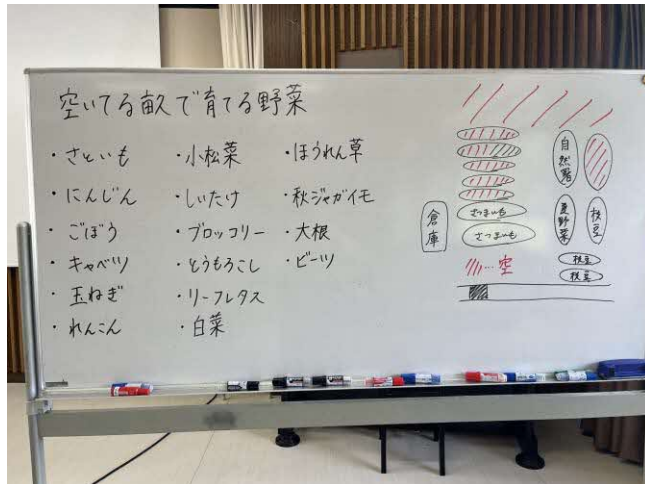 空いてる畝で育てる野菜
・さといも
・にんじん
・ごぼう
・キャベツ
・玉ねぎ
・れんこん
・小松菜
・しいたけ
・ブロッコリー
・とうもろこし
・リーフレタス
・白菜
・ほうれん草
・秋ジャガイモ
・大根
・ビーツ
倉庫
さつまいも
さつまいも
…空
自然
夏野菜
枝豆
枝豆
枝豆